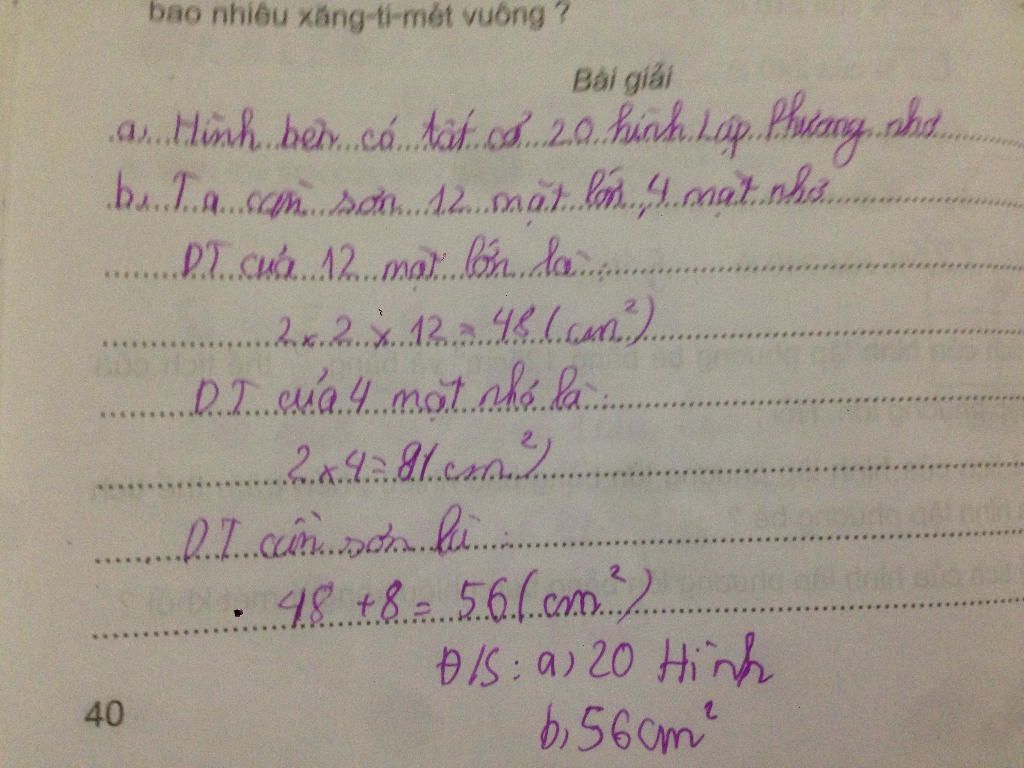 bao nhiêu xăng-ti-mét vuông ?
Bài giải
a, Hình bên có tất cả 20 hình Lập Phương nhỏ
b, Ta cần sơn 12 mặt lớn, 4 mặt nhỏ
DT của 12 mặt lớn là :
2 x 2 x 12 = 48 (cm²)
DT của 4 mặt nhỏ là :
2 x 4 = 8 (cm²)
DT cần sơn là :
48 + 8 = 56 (cm²)
Đ/S : a) 20 Hình
b, 56 cm²
40